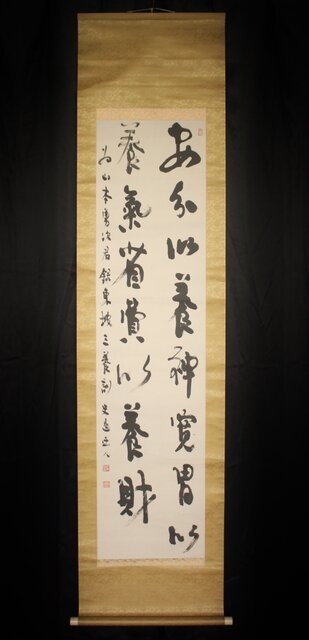 安分以養神寛胃以
養氣省費以養財
為山本勇次君録東坡三養訓